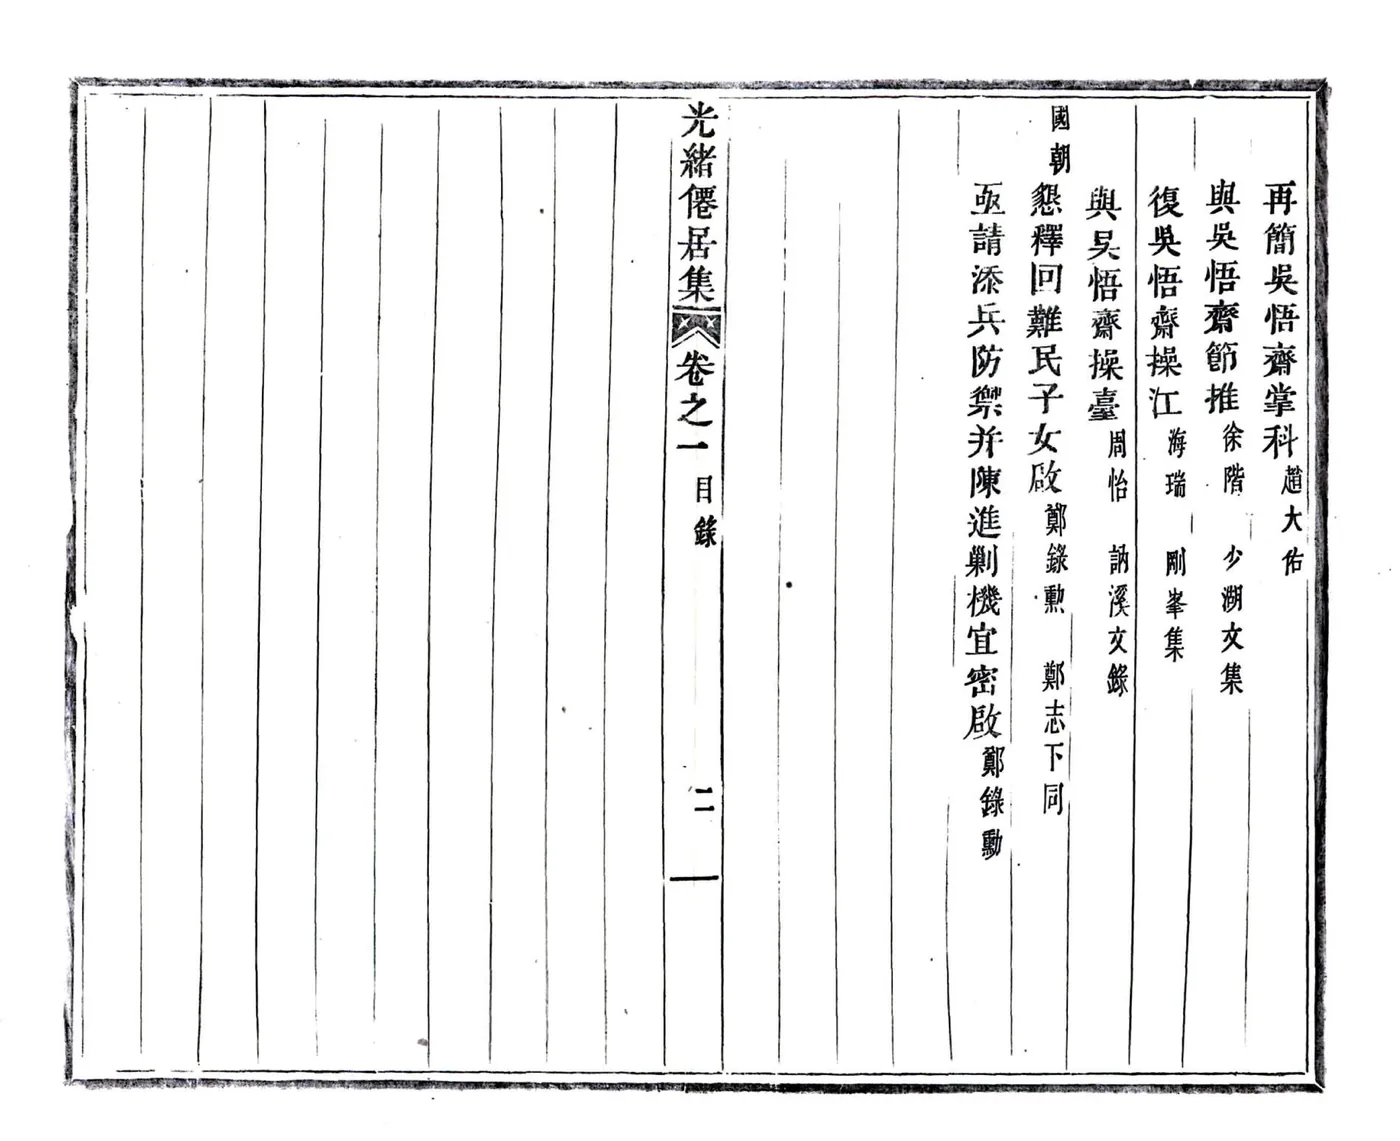 再簡吳悟齋掌科 趙大佑
與吳悟齋節推 徐階 少湖文集
復吳悟齋操江 海瑞 剛峯集
與吳悟齋操臺 周怡 訥溪文錄
國朝
懇釋回難民子女啟 鄭錄勳 鄭志下同
亟請添兵防禦并陳進剿機宜密啟 鄭錄勳
光緒僊居集 卷之一 目錄 二